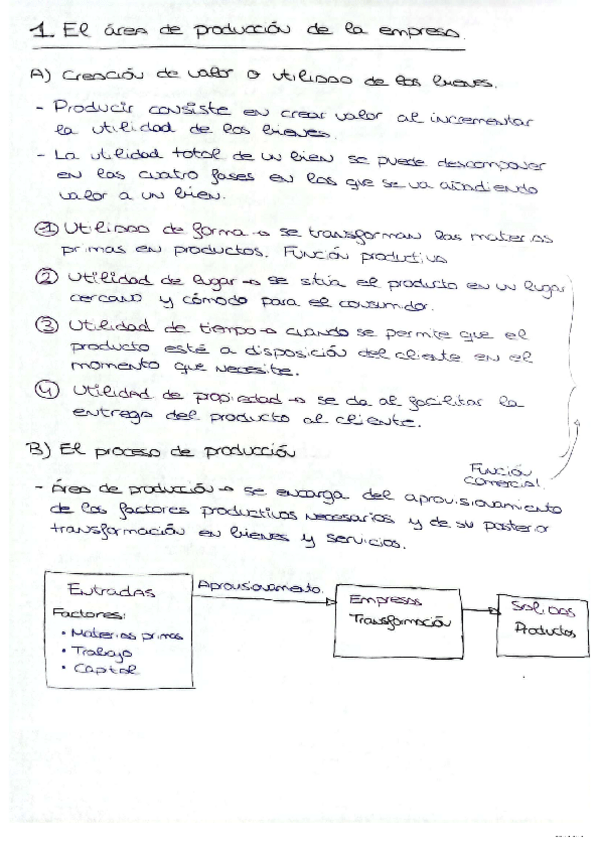 1. El área de producción de la empresa.
A) Creación de valor o utilidad de los bienes.
- Producir consiste en crear valor al incrementar
la utilidad de los bienes.
- La utilidad total de un bien se puede descomponer
en las cuatro fases en las que se va añadiendo
valor a un bien.
① Utilidad de forma → se transforman las materias
primas en productos. Función productiva
② Utilidad de lugar → se sitúa el producto en un lugar
cercano y cómodo para el consumidor.
③ Utilidad de tiempo → cuando se permite que el
producto esté a disposición del cliente en el
momento que necesite.
④ Utilidad de propiedad → se da al facilitar la
entrega del producto al cliente.
Función
comercial
B) El proceso de producción
- Área de producción → se encarga del aprovisionamiento
de los factores productivos necesarios y de su posterior
transformación en bienes y servicios.
Entradas
Factores:
• Materias primas
• Trabajo
• Capital
Aprovisionamiento.
Empresas
Transformación
Salidas
Productos